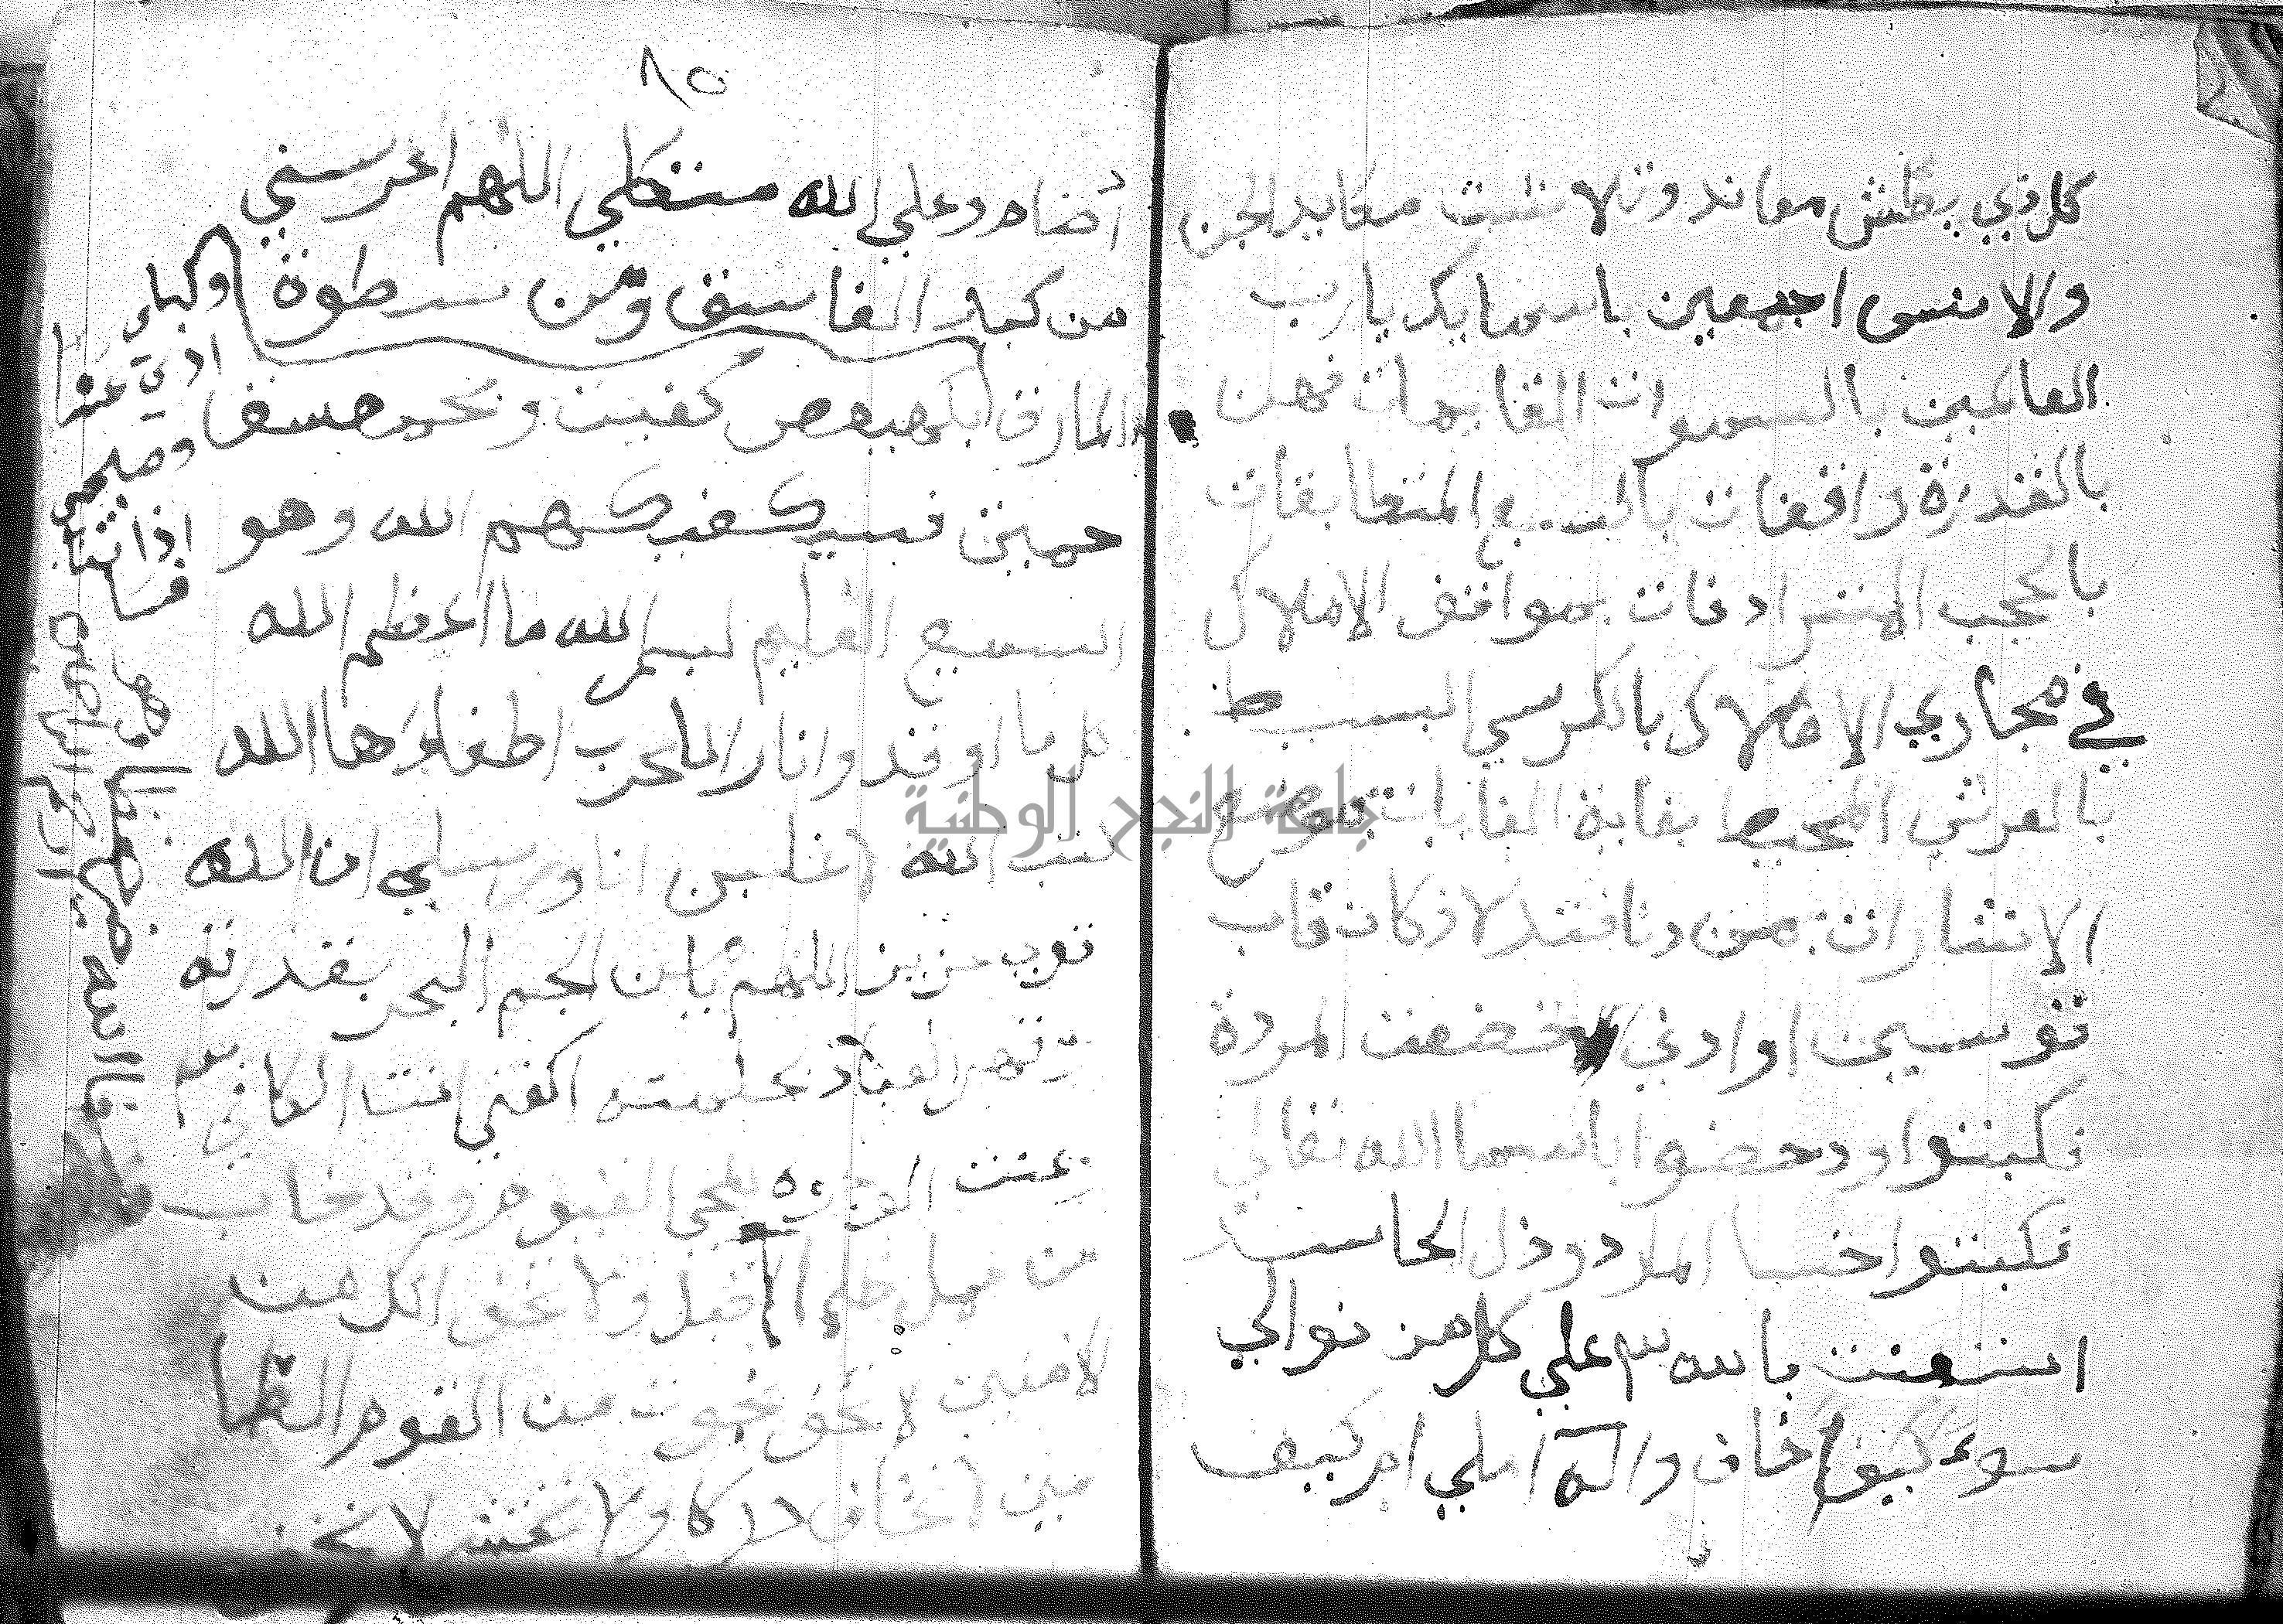 كل ذي بطش معاند ون لا نثبت مكايد الجن
والانس اجمعين باسمايك يارب
العالمين بالسموات القايمات فهن
بالقدرة رافعات بالسبع المتطابقات
بالحجب المترادفات بمواقف الاملاك
في مجاري الافلاك بالكرسي البسيط
بالعرش المحيط بغاية الغايات بموضع
الاشارات من دنا فتدلا فكان قاب
قوسين او ادني خضعت المردة
فكبتوا ودحضوا باسما الله تعالي
فكبتوا خسا المارد وذل الحاسد
استعنت بالله علي كل من نوالي
سوء كيف اخاف واله املي ام كيف
٨٥
أضام وعلي الله متكلي اللهم احرسني
من كيد الفاسق ومن سطوة
المارق بكهيعص كفيت وبحمعسق
حميت فسيكفيكهم الله وهو
السميع العليم بسم الله ما اعظم الله
كل ما اوقدوا نارا للحرب اطفاؤها الله
كتب الله لاغلبن انا ورسلي ان الله
قوي عزيز اللهم يامن الجم البحر بقدرته
وقهر العباد بحكمته اكفني انت الكافي
وعنت الوجوه للحي القيوم وقد خاب
من حمل ظلما اقبل ولا تخف انك من
الامنين لا تخف نجوت من القوم الظا
مين لا تخاف دركا ولا تخشي لا تخف
وكيد
فالله خير حافظا وهو
ارحم الراحمين
جامعة النجاح الوطنية